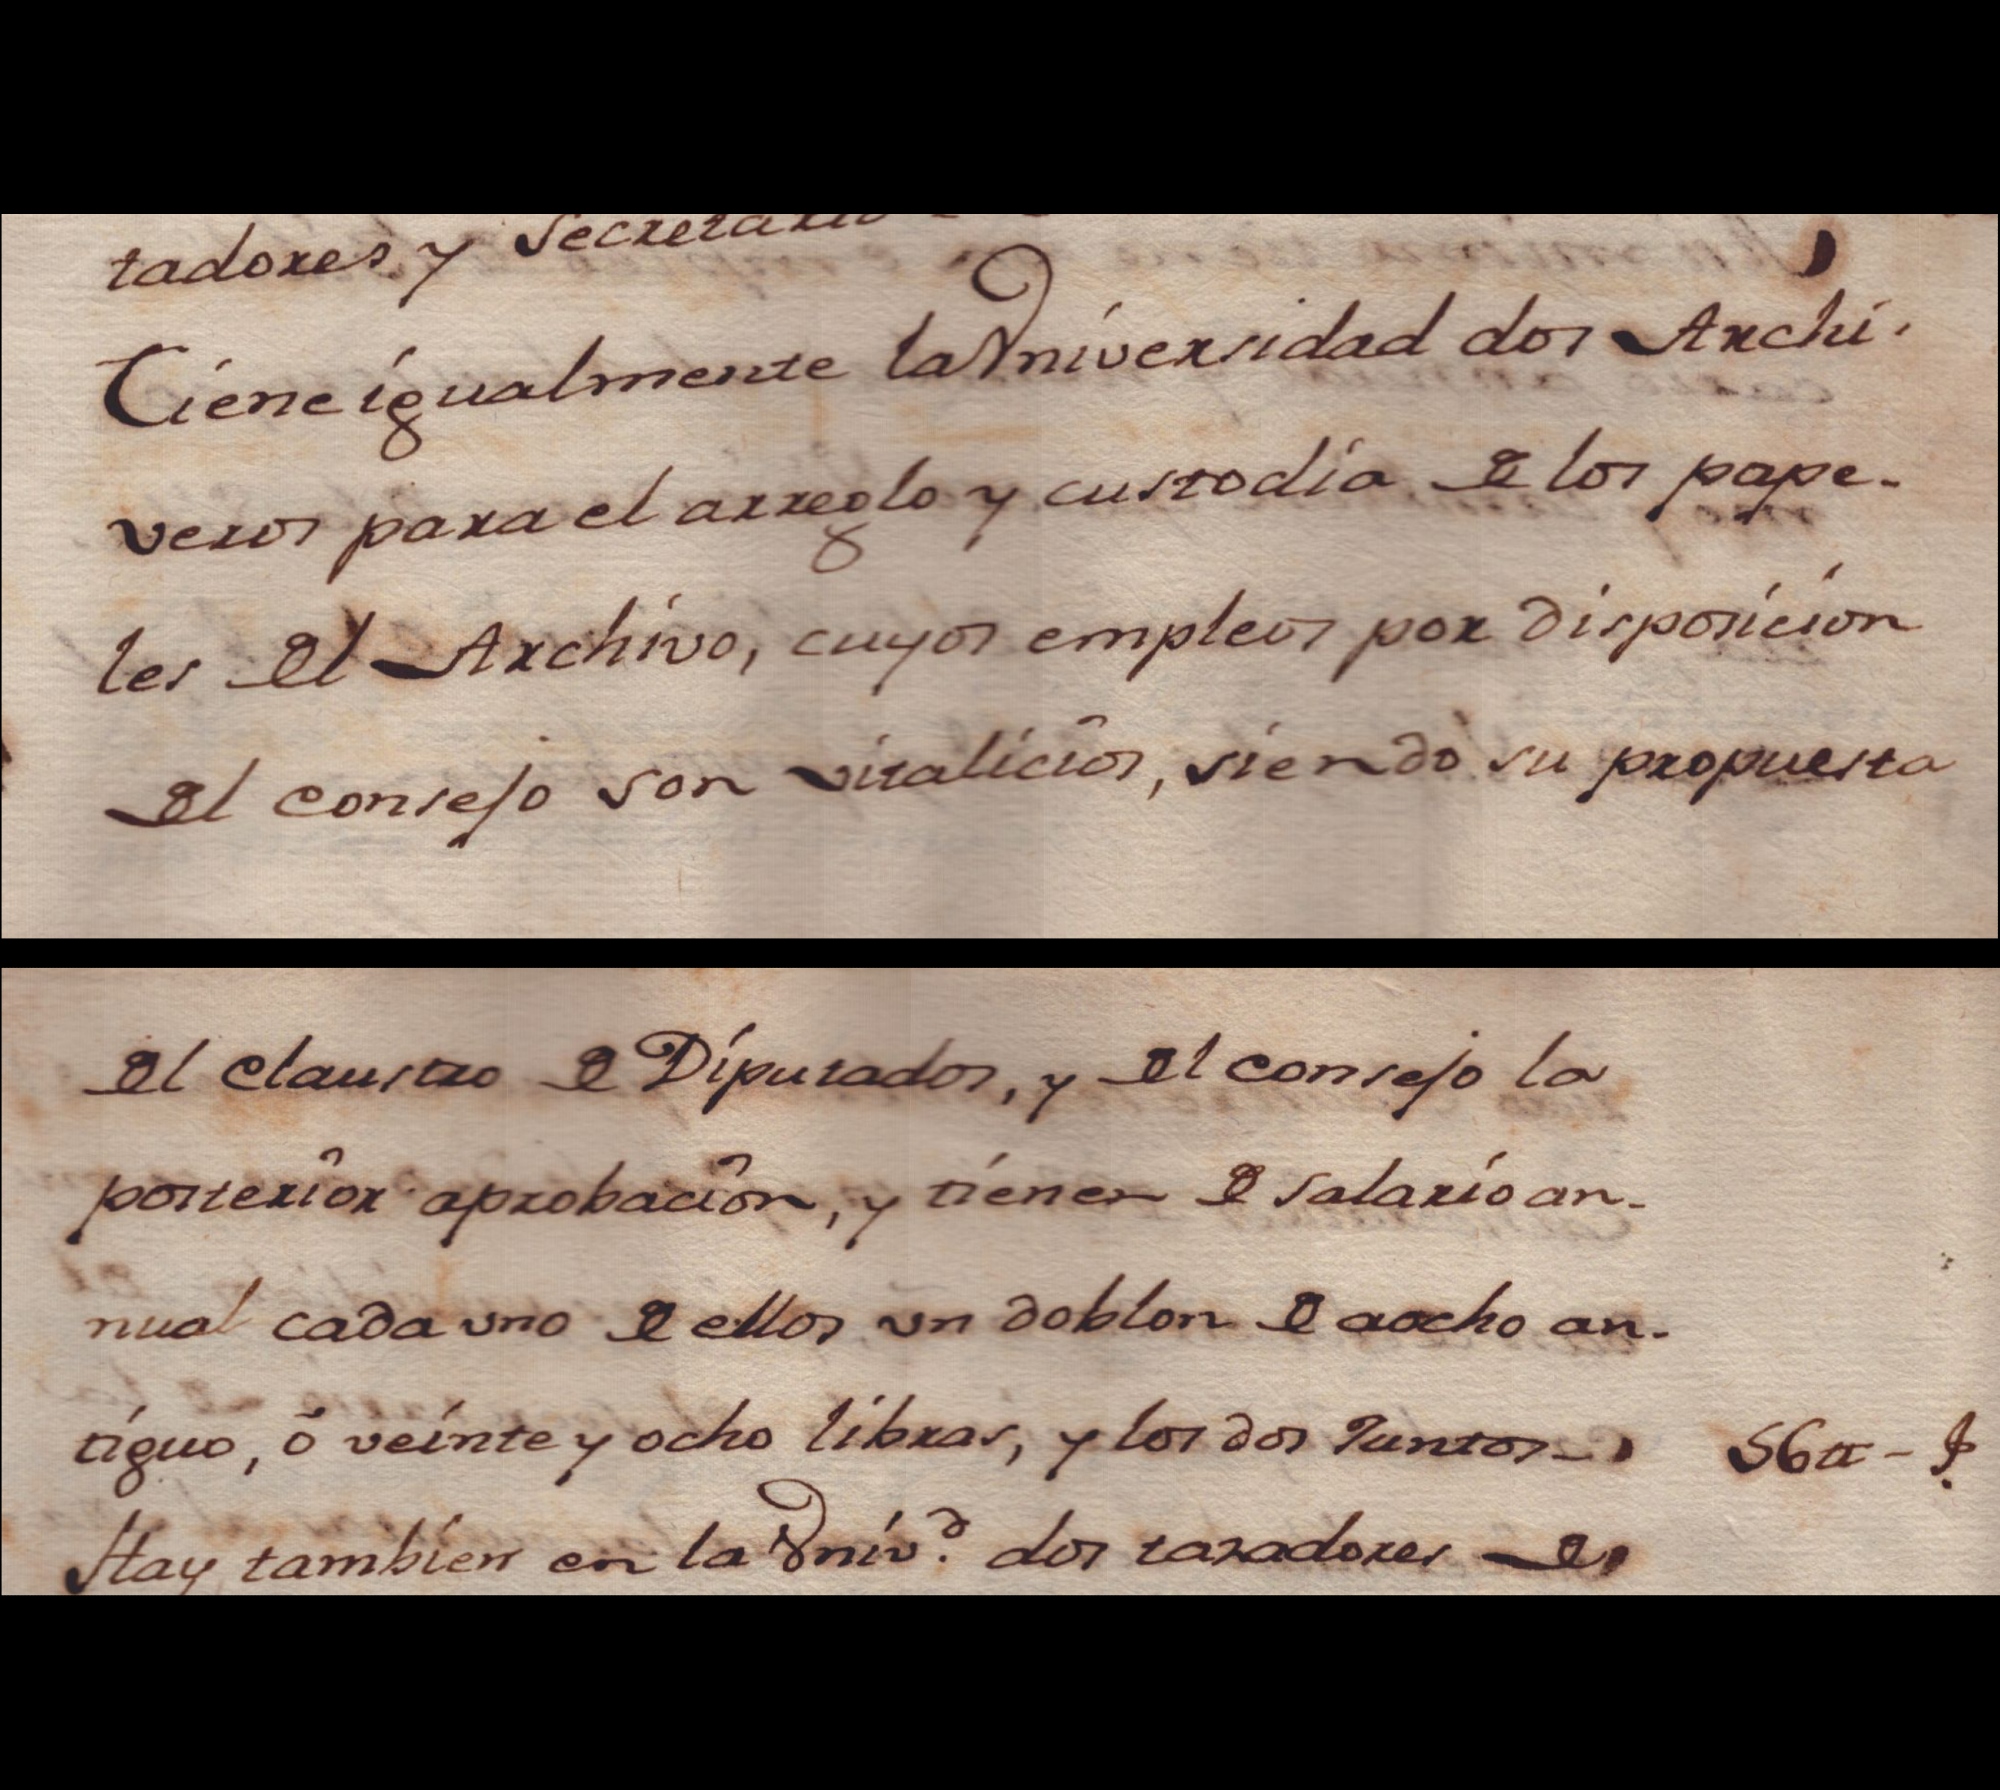 tadores y Secretario
Tiene igualmente la Universidad dos Archi-
veros para el arreglo y custodia de los pape-
les del Archivo, cuyos empleos por disposicion
del consejo son vitalicios, siendo su propuesta
del claustro de Diputados, y del consejo la
posterior aprobacion, y tienen de salario an-
nual cada uno de ellos un doblon de aocho an-
tiguo, ó veinte y ocho libras, y los dos Juntos 56 tt -
Hay tambien en la Univ.d dos taxadores de